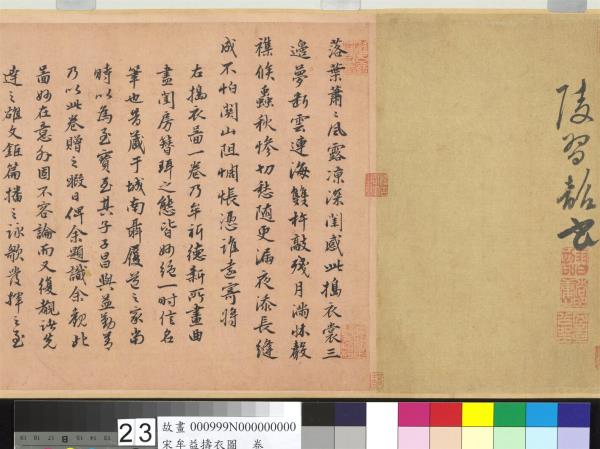 陵習韶書
落葉蕭〻風露涼深閨感此搗衣裳三
邊夢斷雲連海雙杵敲殘月滿牀聲
襍候蟲秋慘切愁隨更漏夜添長縫
成不怕關山阻惆悵憑誰遠寄將
右搗衣圖一卷乃牟祈德新所畫曲
盡閨房簪珥之態皆妙絕一時信名
筆也昔藏于城南聶履道之家當
時以為至寶至其子子昌與益勤善
乃以此卷贈之暇日俾余題識余觀此
圖妙在意外固不容論而又復觀諸先
達之雄文鉅篇播之詠歌發揮之至
23
故畫 000999N000000000
宋牟益擣衣圖 卷